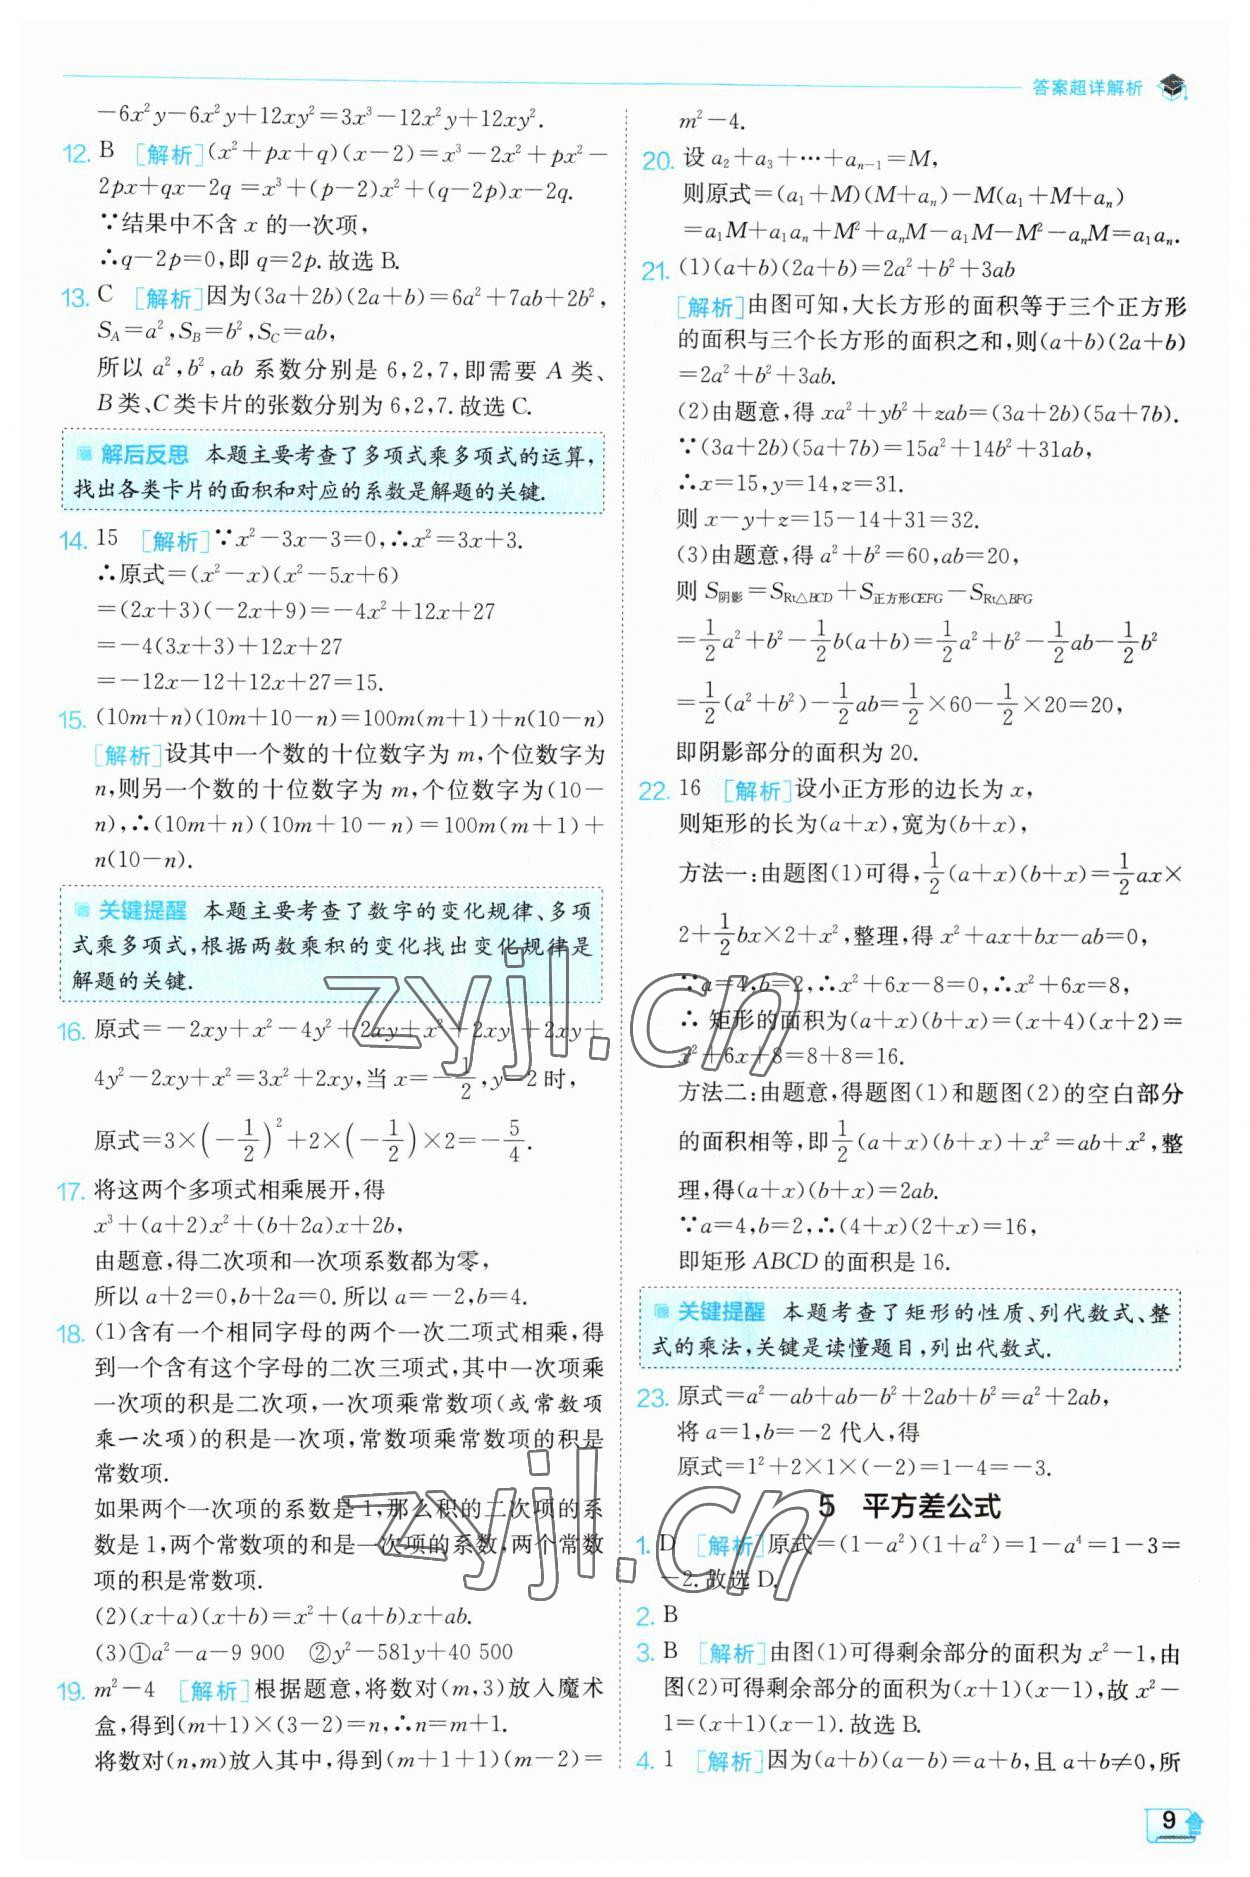 答案超详解析
-6x²y-6x²y+12xy²=3x³-12x²y+12xy².
12. B [解析](x²+px+q)(x-2)=x³-2x²+px²-
2px+qx-2q =x³+(p-2)x²+(q-2p)x-2q.
∵结果中不含 x 的一次项,
∴q-2p=0,即 q=2p.故选 B.
13. C [解析]因为(3a+2b)(2a+b)=6a²+7ab+2b²,
S_A=a²,S_B=b²,S_C=ab,
所以 a²,b²,ab 系数分别是 6,2,7,即需要 A 类、
B 类、C 类卡片的张数分别为 6,2,7.故选 C.
解后反思 本题主要考查了多项式乘多项式的运算,
找出各类卡片的面积和对应的系数是解题的关键.
14. 15 [解析]∵x²-3x-3=0,∴x²=3x+3.
∴原式=(x²-x)(x²-5x+6)
=(2x+3)(-2x+9)=-4x²+12x+27
=-4(3x+3)+12x+27
=-12x-12+12x+27=15.
15. (10m+n)(10m+10-n)=100m(m+1)+n(10-n)
[解析]设其中一个数的十位数字为 m,个位数字为
n,则另一个数的十位数字为 m,个位数字为(10-
n),∴(10m+n)(10m+10-n)=100m(m+1)+
n(10-n).
关键提醒 本题主要考查了数字的变化规律、多项
式乘多项式,根据两数乘积的变化找出变化规律是
解题的关键.
16. 原式=-2xy+x²-4y²+2xy+x²+2xy+2xy+
4y²-2xy+x²=3x²+2xy,当 x=-1/2,y=2 时,
原式=3×(-1/2)²+2×(-1/2)×2=-5/4.
17. 将这两个多项式相乘展开,得
x³+(a+2)x²+(b+2a)x+2b,
由题意,得二次项和一次项系数都为零,
所以 a+2=0,b+2a=0.所以 a=-2,b=4.
18. (1)含有一个相同字母的两个一次二项式相乘,得
到一个含有这个字母的二次三项式,其中一次项乘
一次项的积是二次项,一次项乘常数项(或常数项
乘一次项)的积是一次项,常数项乘常数项的积是
常数项.
如果两个一次项的系数是 1,那么积的二次项的系
数是 1,两个常数项的和是一次项的系数,两个常数
项的积是常数项.
(2)(x+a)(x+b)=x²+(a+b)x+ab.
(3)①a²-a-9 900 ②y²-581y+40 500
19. m²-4 [解析]根据题意,将数对(m,3)放入魔术
盒,得到(m+1)×(3-2)=n,∴n=m+1.
将数对(n,m)放入其中,得到(m+1+1)(m-2)=
m²-4.
20. 设 a₂+a₃+⋯+aₙ₋₁=M,
则原式=(a₁+M)(M+aₙ)-M(a₁+M+aₙ)
=a₁M+a₁aₙ+M²+aₙM-a₁M-M²-aₙM=a₁aₙ.
21. (1)(a+b)(2a+b)=2a²+b²+3ab
[解析]由图可知,大长方形的面积等于三个正方形
的面积与三个长方形的面积之和,则(a+b)(2a+b)
=2a²+b²+3ab.
(2)由题意,得 xa²+yb²+zab=(3a+2b)(5a+7b).
∵(3a+2b)(5a+7b)=15a²+14b²+31ab,
∴x=15,y=14,z=31.
则 x-y+z=15-14+31=32.
(3)由题意,得 a²+b²=60,ab=20,
则 S阴影=S_Rt△BCD+S正方形CEFG-S_Rt△BFG
=1/2a²+b²-1/2b(a+b)=1/2a²+b²-1/2ab-1/2b²
=1/2(a²+b²)-1/2ab=1/2×60-1/2×20=20,
即阴影部分的面积为 20.
22. 16 [解析]设小正方形的边长为 x,
则矩形的长为(a+x),宽为(b+x),
方法一:由题图(1)可得,1/2(a+x)(b+x)=1/2ax×
2+1/2bx×2+x²,整理,得 x²+ax+bx-ab=0,
∵a=4,b=2,∴x²+6x-8=0,∴x²+6x=8,
∴矩形的面积为(a+x)(b+x)=(x+4)(x+2)=
x²+6x+8=8+8=16.
方法二:由题意,得题图(1)和题图(2)的空白部分
的面积相等,即1/2(a+x)(b+x)+x²=ab+x²,整
理,得(a+x)(b+x)=2ab.
∵a=4,b=2,∴(4+x)(2+x)=16,
即矩形 ABCD 的面积是 16.
关键提醒 本题考查了矩形的性质、列代数式、整
式的乘法,关键是读懂题目,列出代数式.
23. 原式=a²-ab+ab-b²+2ab+b²=a²+2ab,
将 a=1,b=-2 代入,得
原式=1²+2×1×(-2)=1-4=-3.
5 平方差公式
1. D [解析]原式=(1-a²)(1+a²)=1-a⁴=1-3=
-2.故选 D.
2. B
3. B [解析]由图(1)可得剩余部分的面积为 x²-1,由
图(2)可得剩余部分的面积为(x+1)(x-1),故 x²-
1=(x+1)(x-1).故选 B.
4. 1 [解析]因为(a+b)(a-b)=a+b,且 a+b≠0,所
9
zyjl.cn
zyjl.cn